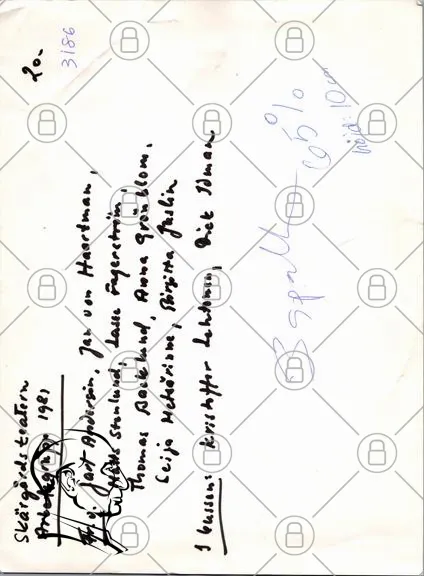 20.
3186
Skärgårdsteatern
Arbetsgrupp 1981
Fr. v. Jart Andersin, Jan von Haartman,
Stenlund, Lasse Fagerström,
Thomas Backlund, Anna Grönblom,
Seija Metsärinne, Birgitta Juslin
I bussen: Kristoffer Lehtonen, Dick Idman
65%
höjd: 10 cm